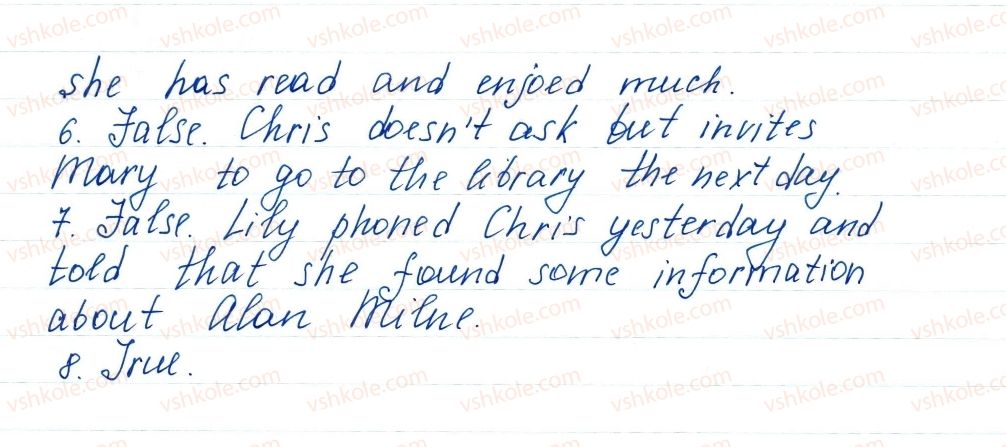 she has read and enjoed much.
6. False. Chris doesn't ask but invites
Mary to go to the library the next day.
7. False. Lily phoned Chris yesterday and
told that she found some information
about Alan Milne.
8. True.